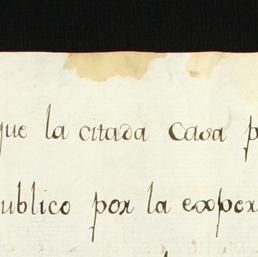 que la citada Casa p
ublico por la exper